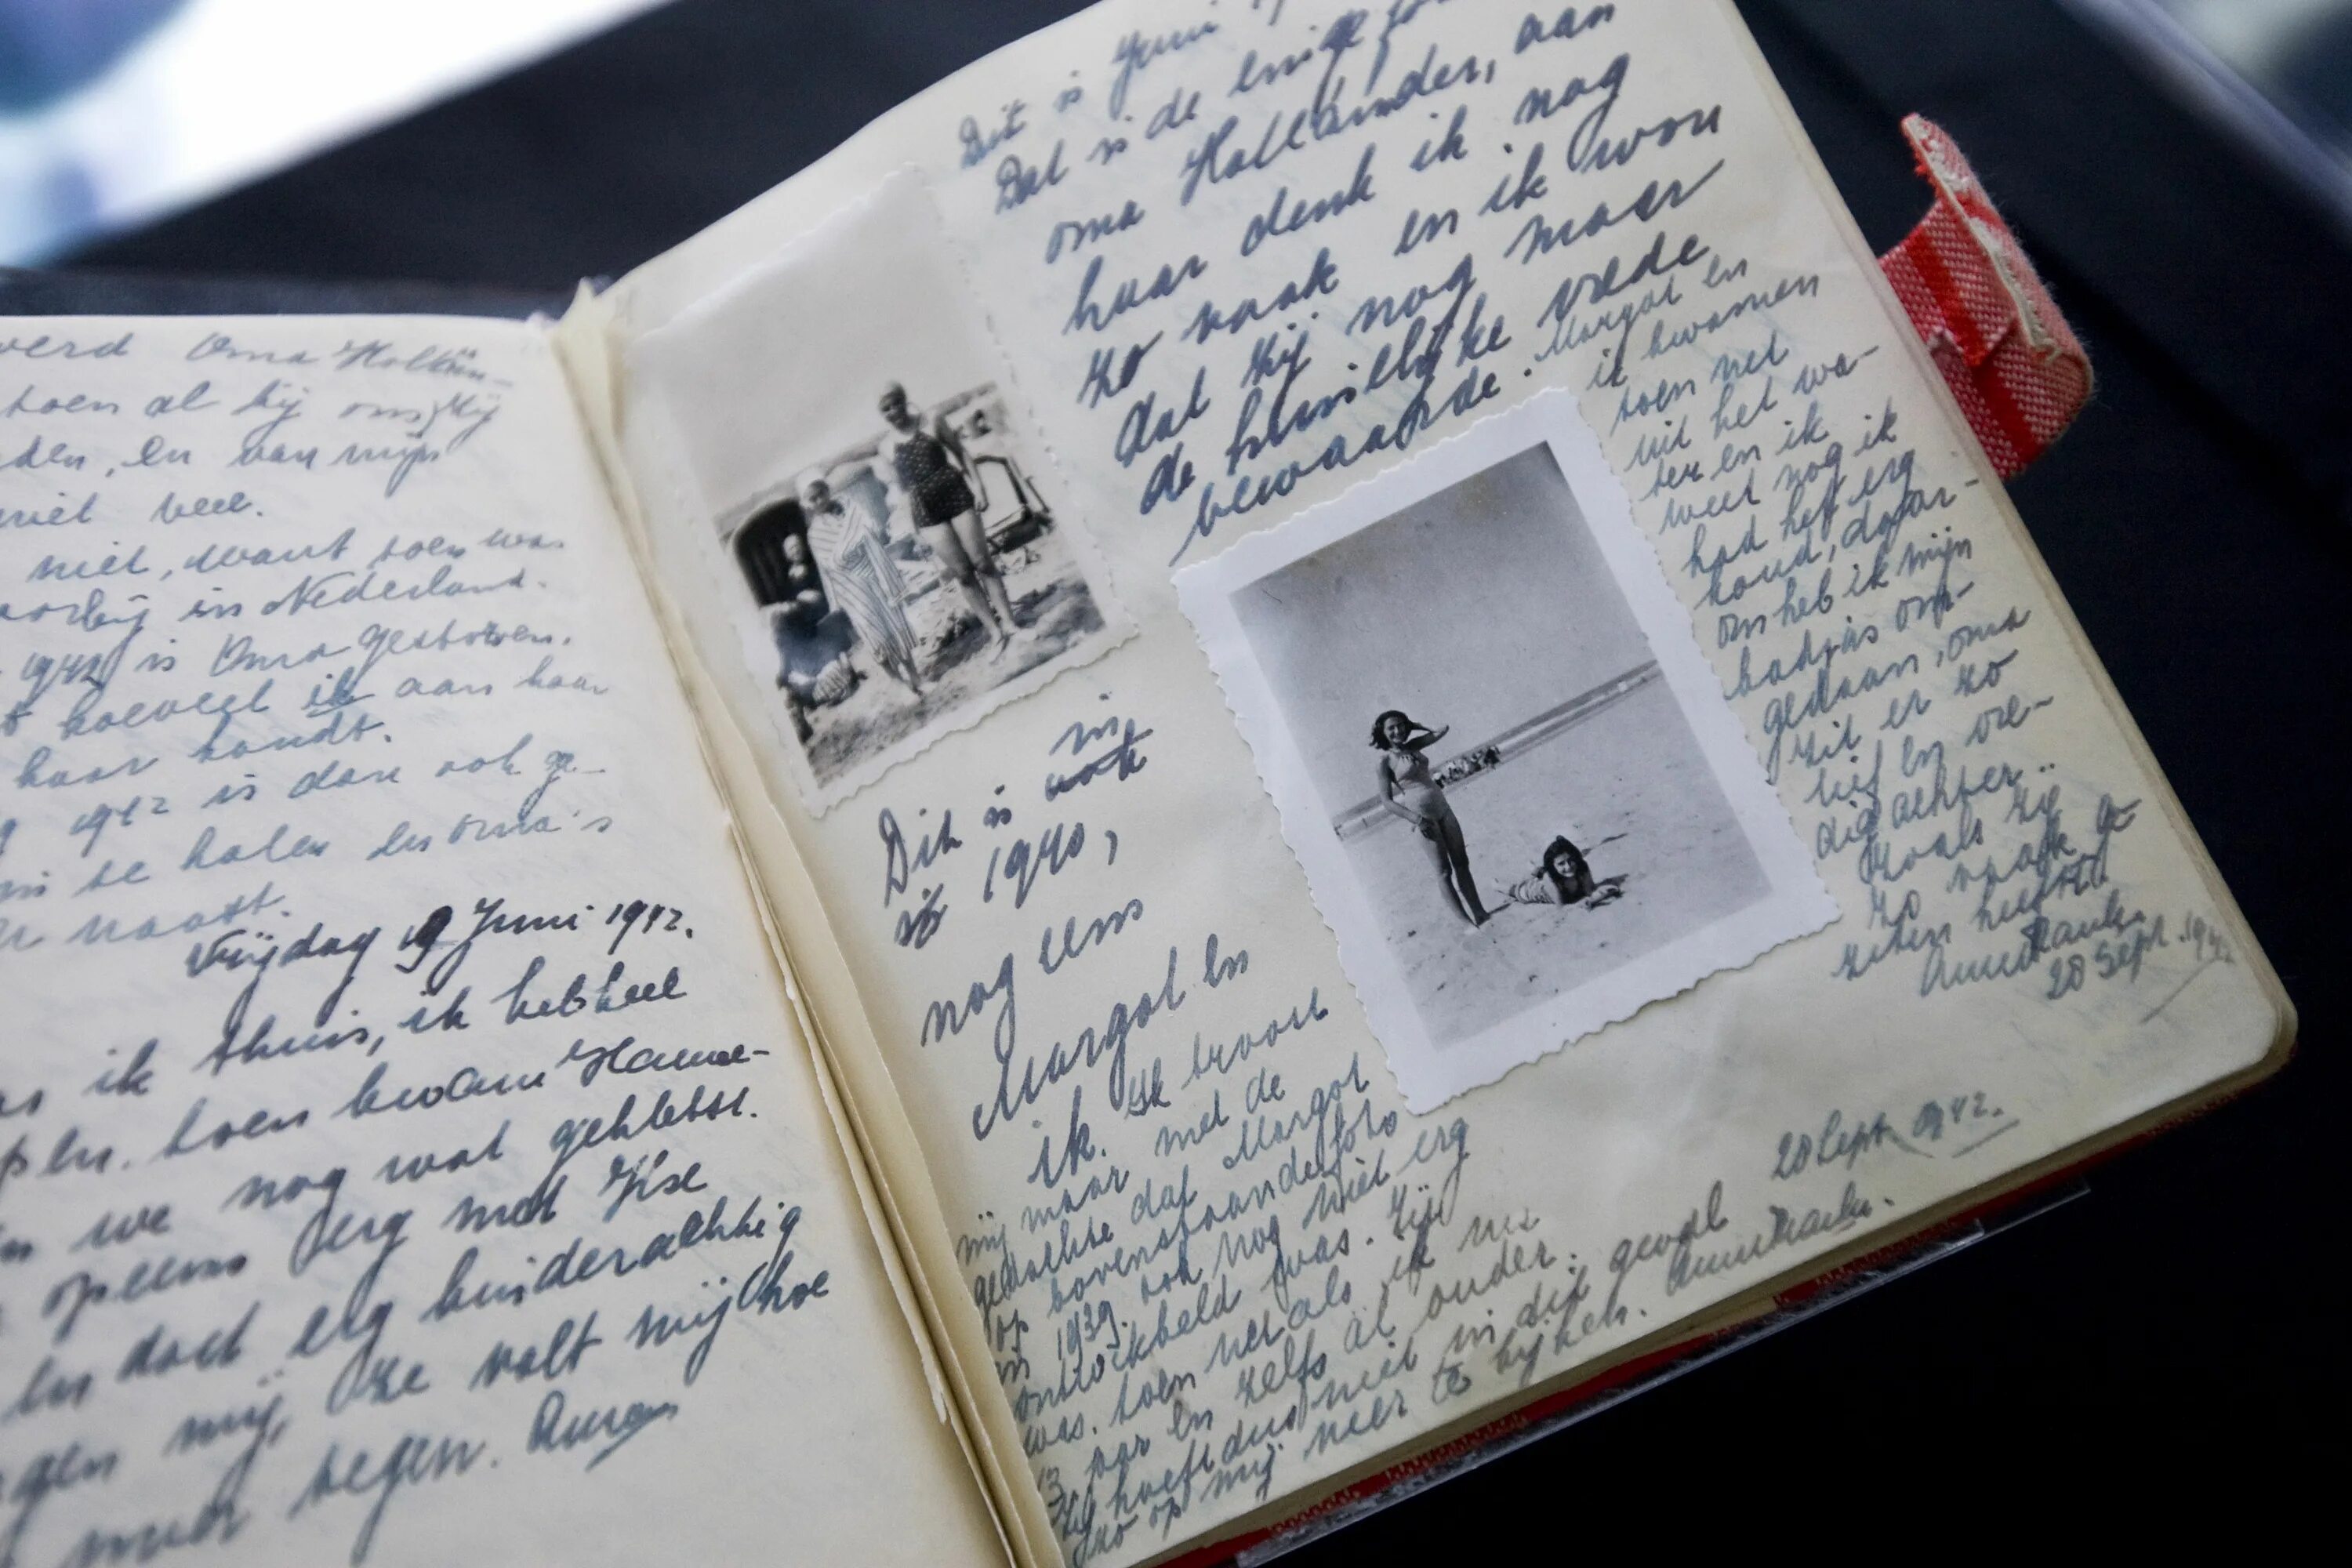 werd Oma Hollän-
toen al bij ons, zij
den, en van mijn
niet veel.
niet, want toen was
oorlog in Nederland.
1942 is Oma gestorven.
hoeveel ik aan haar
haar houdt.
1942 is dan ook ge-
in te halen en oma's
er naast.
Vrijdag 19 Juni 1942.
ik thuis, ik heb heel
pen. toen kwam Hanne-
we nog wat gekletst.
opeens erg met Ilse
en doet erg kinderachtig
gen mij, ze valt mij hoe
meer tegen. Anne
Dit is Juni
Dat is de enige foto
oma Holländer, aan
haar denk ik nog
zo vaak en ik wou
dat zij nog maar
de huiselijke vrede
bewaarde. Margot en
ik kwamen
toen net
uit het wa-
ter en ik
weet nog ik
had het erg
koud, daar-
om heb ik mijn
badjas om-
gedaan, oma
zit er zo
lief en vre-
dig achter..
zoals zij
zo vaak ge-
zeten heeft
Anne Frank
28 Sept. 1942
Dit is in
is 1940,
nog eens
Margot en
ik. Ik troost
mij maar met de
gedachte dat Margot
op bovenstaande foto
in 1939. ook nog niet erg
ontwikkeld was. Zij
was. toen net als ik nu
13 jaar en zelfs al ouder.
Zij hoeft dus niet in dit geval
zo op mij neer te kijken. Anne Frank.
28 Sept. 1942.